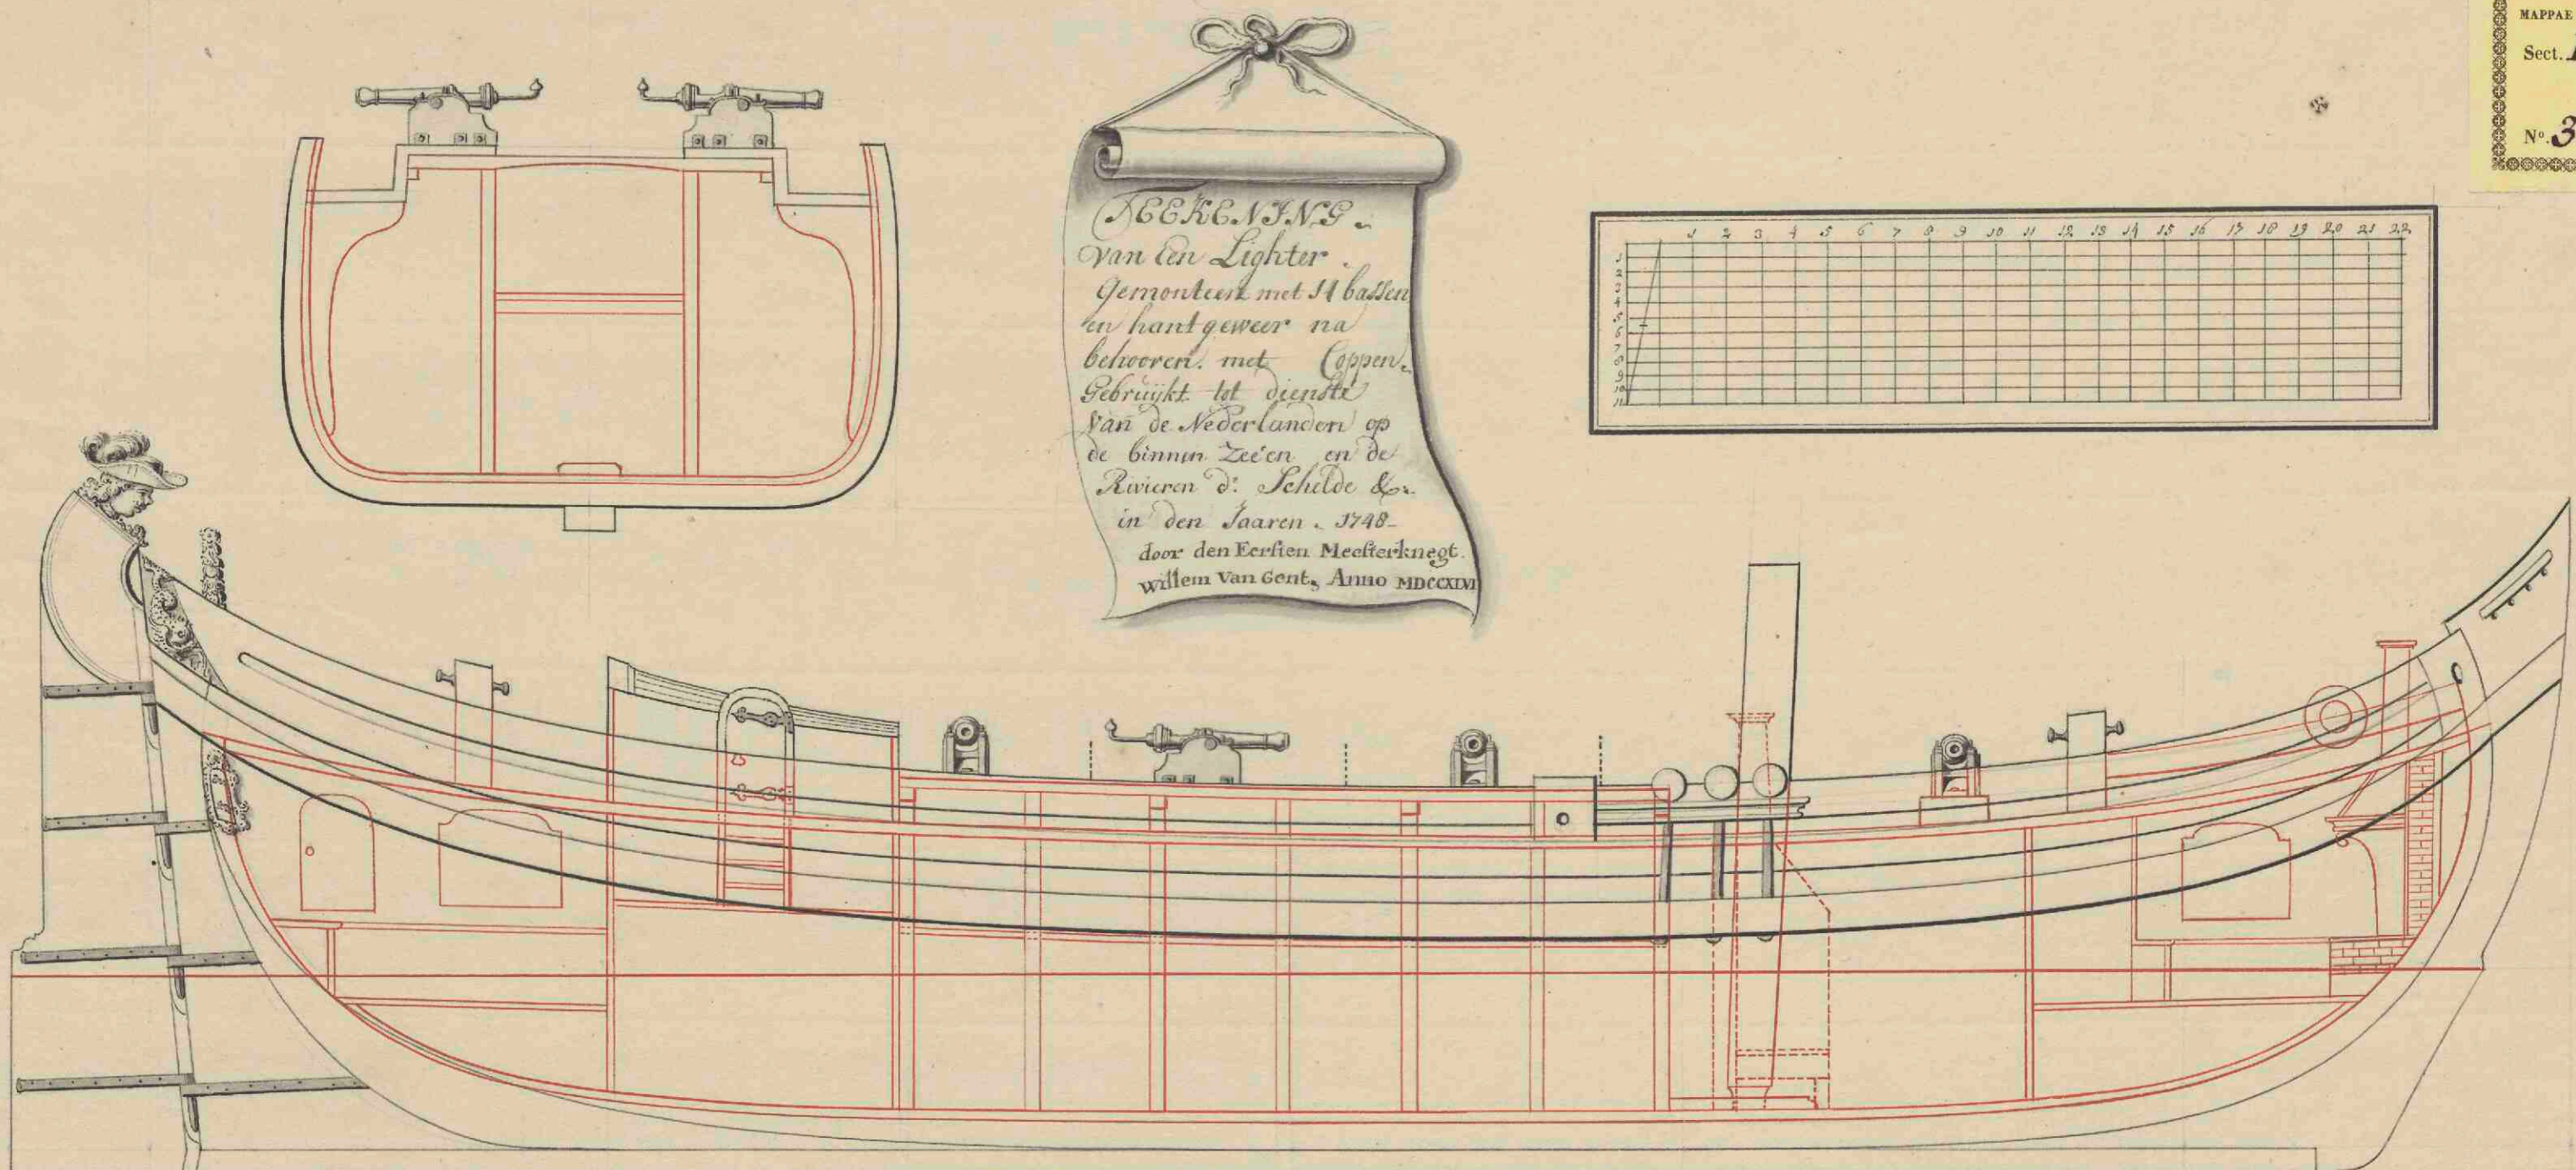 TEEKENING.
Van Een Lighter.
Gemonteert met 14 bassen
en hant geweer na
behooren. met Coppen.
Gebruijkt tot dienste
Van de Nederlanden op
de binnen Zeeën en de
Rivieren d: Schelde &:
in den Jaaren. 1748-
door den Eersten Meesterknegt.
Willem Van Gent, Anno MDCCXLVI
1 2 3 4 5 6 7 8 9 10 11 12 13 14 15 16 17 18 19 20 21 22
1
2
3
4
5
6
7
8
9
10
11
MAPPAE
Sect.
No. 3